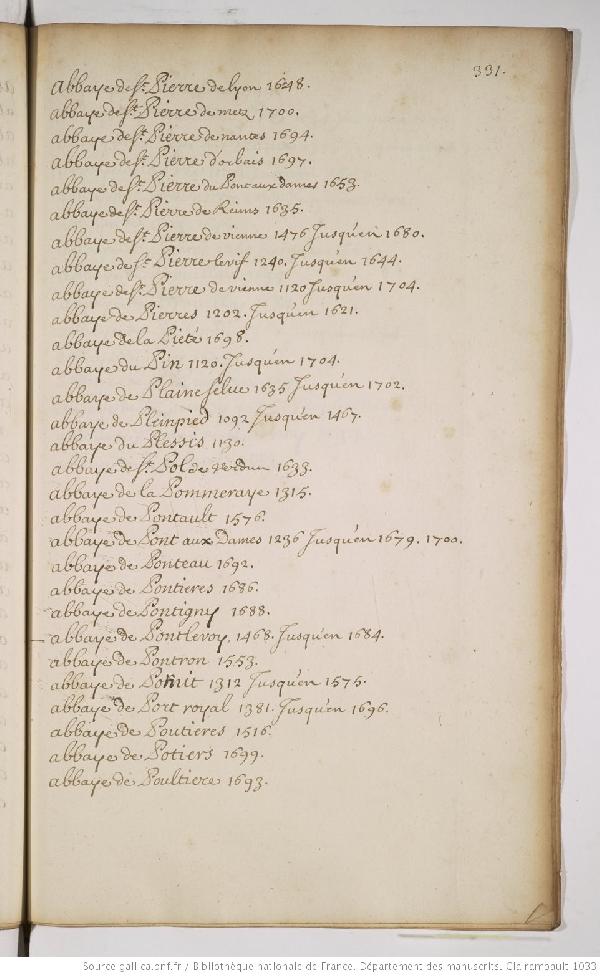 331.
abbaye de St. Pierre de lyon 1648.
abbaye de St. Pierre de metz 1700.
abbaye de St. Pierre de nantes 1694.
abbaye de St. Pierre d'orbais 1697.
abbaye de St. Pierre du Pont aux dames 1653.
abbaye de St. Pierre de Reims 1635.
abbaye de St. Pierre de vienne 1476 Jusqu'en 1680.
abbaye de St. Pierre levif 1240. Jusqu'en 1644.
abbaye de St. Pierre de vienne 1120 Jusqu'en 1704.
abbaye de Pierres 1202. Jusqu'en 1621.
abbaye de la Pieté 1698.
abbaye du Pin 1120. Jusqu'en 1704.
abbaye de Plaineselue 1635 Jusqu'en 1702.
abbaye de Pleinpied 1092 Jusqu'en 1467.
abbaye du Plessis 1130.
abbaye de St. Pol de verdun 1633.
abbaye de la Pommeraye 1315.
abbaye de Pontault 1576.
abbaye de Pont aux Dames 1236 Jusqu'en 1679. 1700.
abbaye de Ponteau 1692.
abbaye de Pontieres 1686.
abbaye de Pontigny 1688.
abbaye de Pontlevoy, 1468. Jusqu'en 1684.
abbaye de Pontron 1553.
abbaye de 1312 Jusqu'en 1575.
abbaye de Port royal 1381. Jusqu'en 1696.
abbaye de Poutieres 1516.
abbaye de Potiers 1699.
abbaye de Poultiere 1693.
Source gallica.bnf.fr / Bibliothèque nationale de France. Département des manuscrits. Clairambault 1033